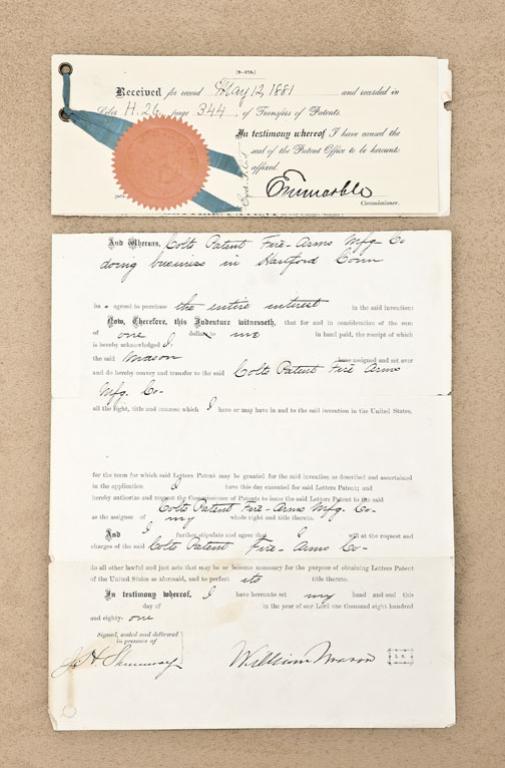 Received for record May 12, 1881 and recorded in
Liber H. 26, page 344, of Transfers of Patents.
In testimony whereof I have caused the
seal of the Patent Office to be hereunto
affixed.
Commissioner.
And Whereas, Colts Patent Fire-Arms Mfg. Co
doing business in Hartford Conn
agreed to purchase the entire interest in the said invention:
Now, Therefore, this Indenture witnesseth, that for and in consideration of the sum
of one dollar to me in hand paid, the receipt of which
is hereby acknowledged I,
the said Mason have assigned and set over
and do hereby convey and transfer to the said Colts Patent Fire Arms
Mfg. Co-
all the right, title and interest which I have or may have in and to the said invention in the United States,
for the term for which said Letters Patent may be granted for the said invention as described and ascertained
in the application I have this day executed for said Letters Patent; and
hereby authorize and request the Commissioner of Patents to issue the said Letters Patent to the said
Colts Patent Fire-Arms Mfg. Co-
as the assignee of my whole right and title thereto.
And I further stipulate and agree that I will at the request and
charges of the said Colts Patent Fire-Arms Co-
do all other lawful and just acts that may be or become necessary for the purpose of obtaining Letters Patent
of the United States as aforesaid, and to perfect its title thereto.
In testimony whereof, I have hereunto set my hand and seal this
day of in the year of our Lord one thousand eight hundred
and eighty-one
Signed, sealed and delivered
in presence of
William Mason L. S.